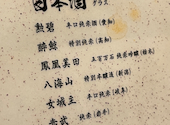 日本酒 グラス
勲碧 辛口純米酒(愛知)
酔鯨 特別純米(高知)
鳳凰美田 五百万石 純米吟醸(栃木)
八海山 特別本醸造(新潟)
女城主 辛口純米(岐阜)
赤武 純米(岩手)